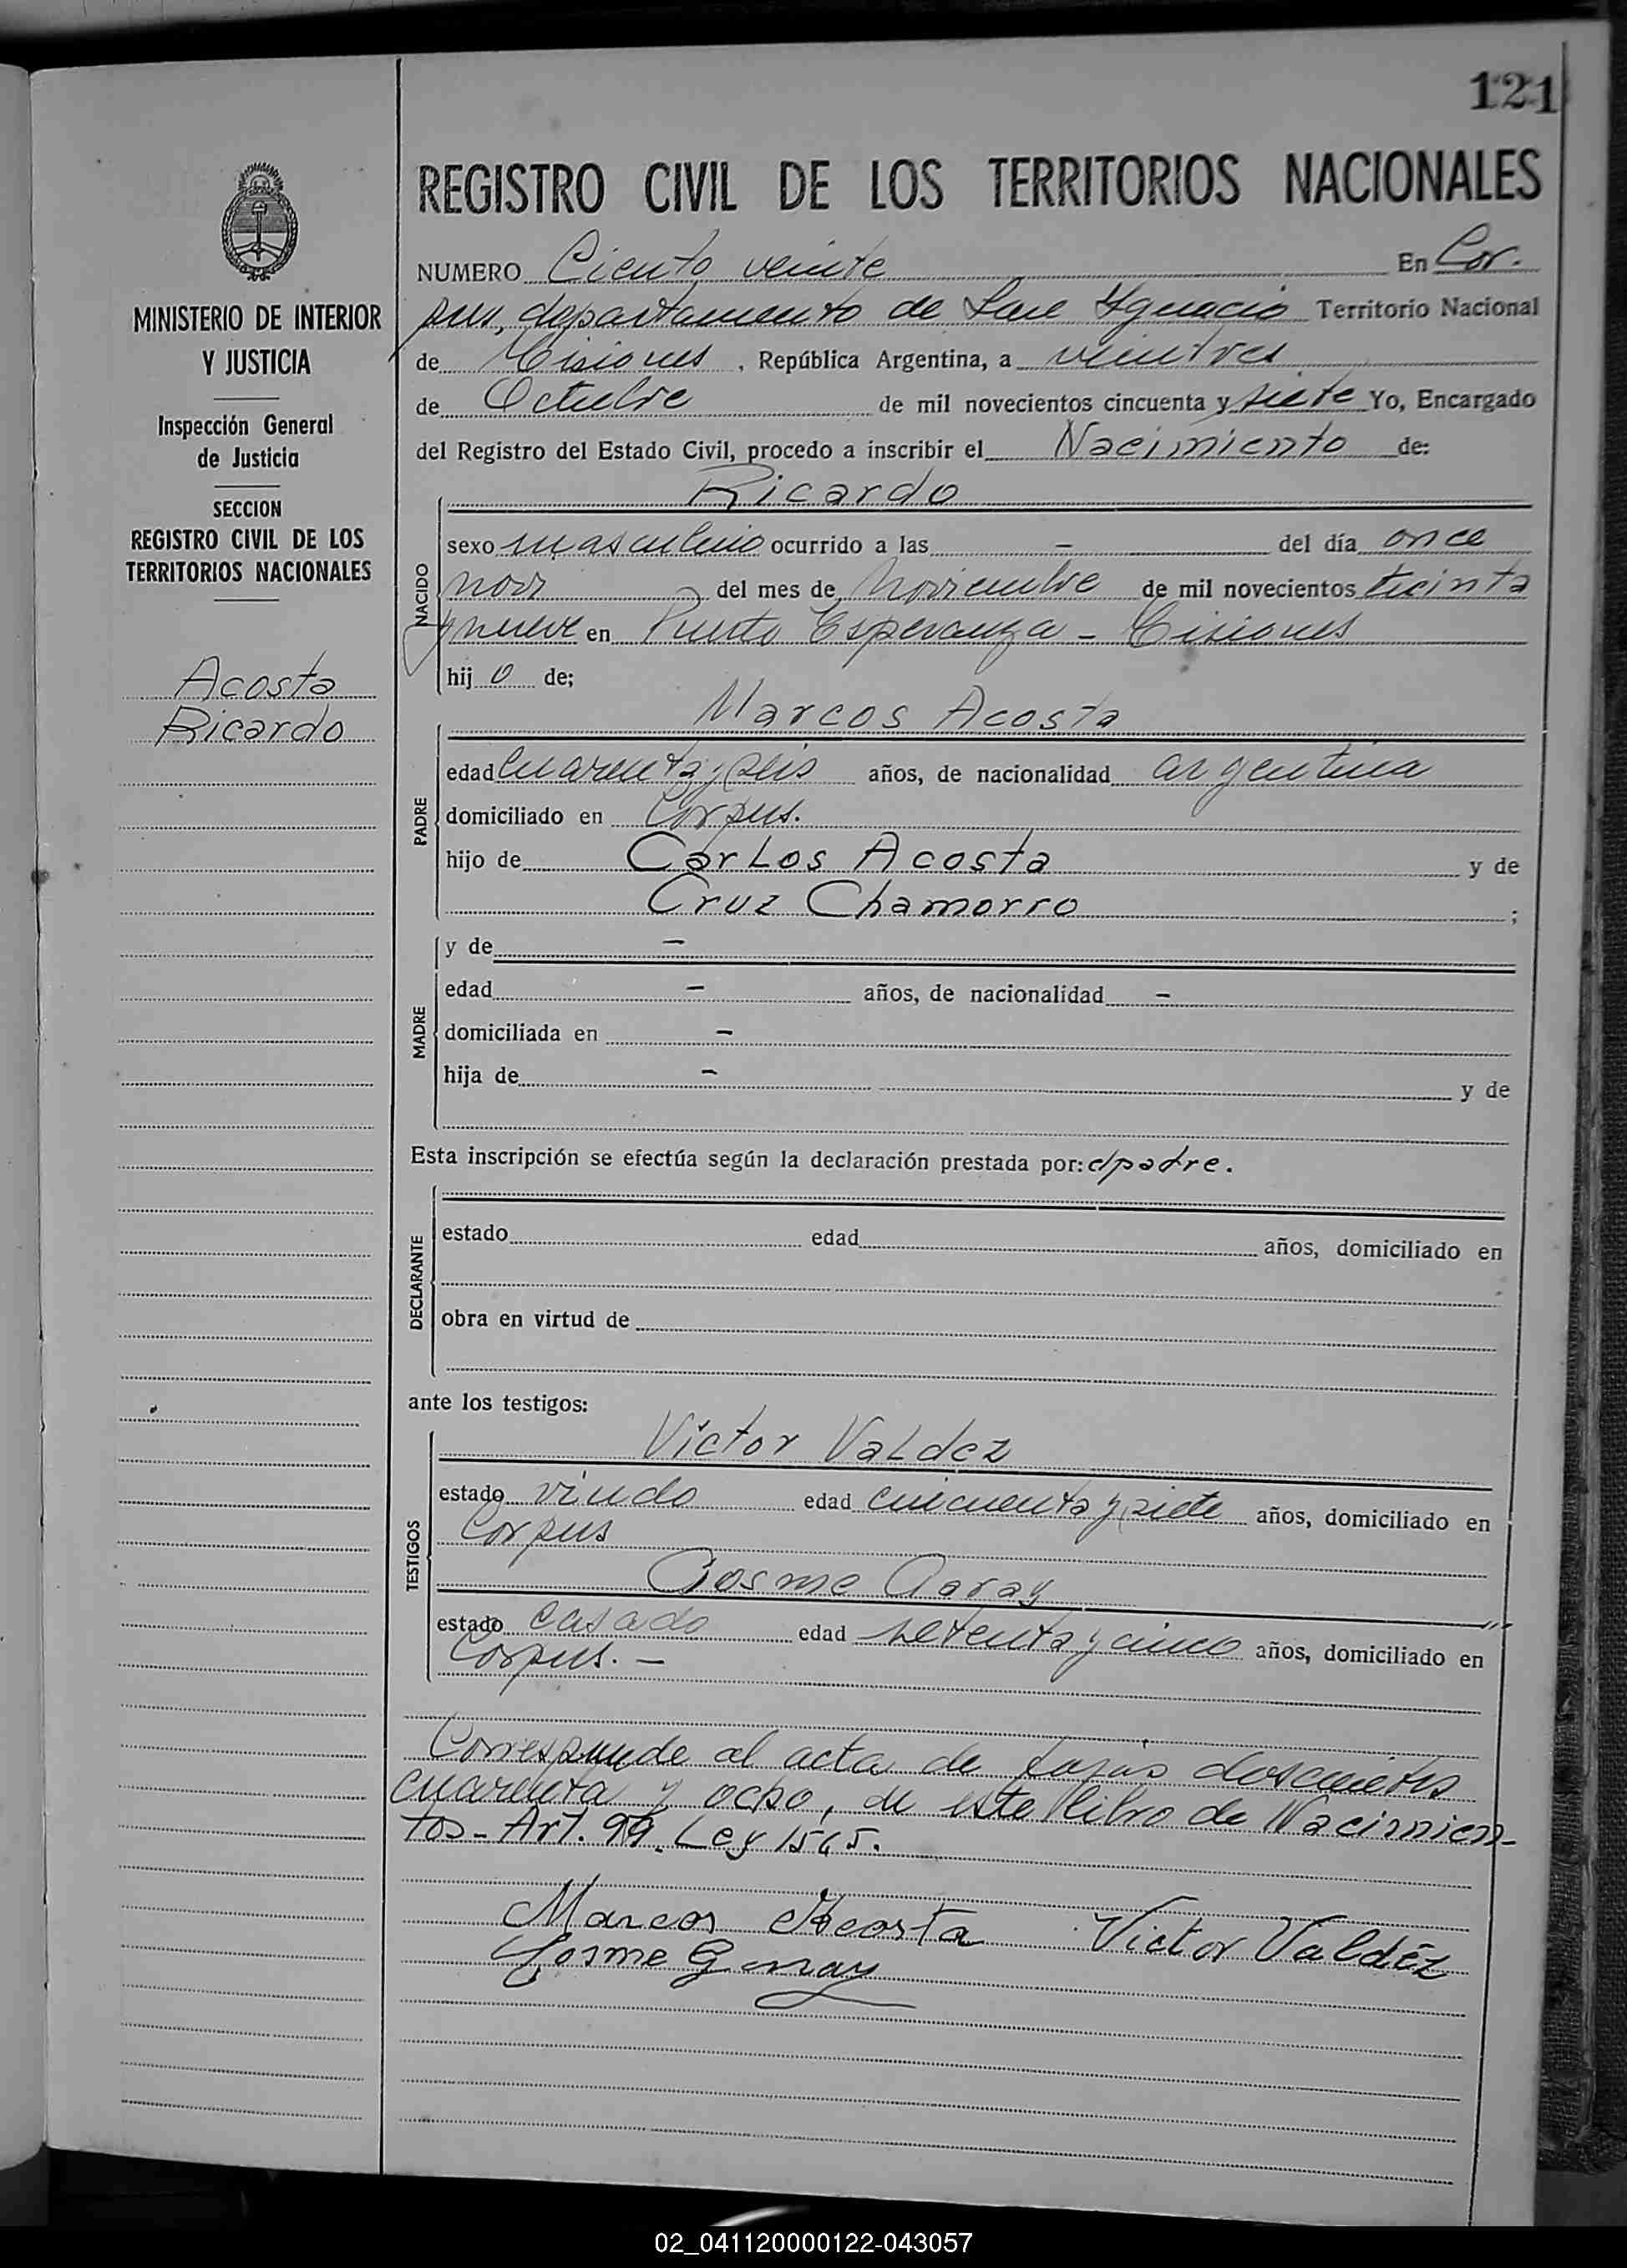 121
REGISTRO CIVIL DE LOS TERRITORIOS NACIONALES
MINISTERIO DE INTERIOR
Y JUSTICIA
Inspección General
de Justicia
SECCION
REGISTRO CIVIL DE LOS
TERRITORIOS NACIONALES
Acosta
Ricardo
NUMERO Ciento veinte En Cor-
pus, departamento de San Ygnacio Territorio Nacional
de Misiones, República Argentina, a veintres
de Octubre de mil novecientos cincuenta y siete Yo, Encargado
del Registro del Estado Civil, procedo a inscribir el Nacimiento de:
NACIDO
Ricardo
sexo masculino ocurrido a las - del día once
del mes de Noviembre de mil novecientos treinta
y nueve en Puerto Esperanza - Misiones
hij o de;
PADRE
Marcos Acosta
edad cuarenta y seis años, de nacionalidad argentina
domiciliado en Corpus.
hijo de Carlos Acosta y de
Cruz Chamorro ;
MADRE
y de -
edad - años, de nacionalidad -
domiciliada en -
hija de - y de
Esta inscripción se efectúa según la declaración prestada por: el padre.
DECLARANTE
estado edad años, domiciliado en
obra en virtud de
ante los testigos:
TESTIGOS
Víctor Valdez
estado viudo edad cincuenta y siete años, domiciliado en
Corpus
Cosme Garay
estado casado edad setenta y cinco años, domiciliado en
Corpus. -
Corresponde al acta de doscientos
cuarenta y ocho, de este libro de Nacimien-
tos - Art. Ley 1565.
Marcos Acosta Victor Valdéz
Cosme Garay
02_041120000122-043057